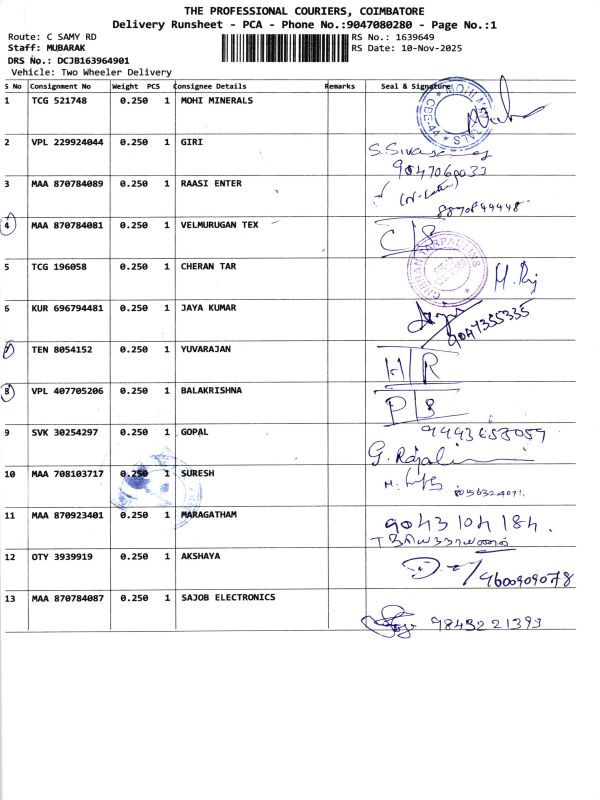 THE PROFESSIONAL COURIERS, COIMBATORE
Delivery Runsheet - PCA - Phone No.:9047080280 - Page No.:1
Route: C SAMY RD RS No.: 1639649
Staff: MUBARAK RS Date: 10-Nov-2025
DRS No.: DCJB163964901
Vehicle: Two Wheeler Delivery
S No Consignment No Weight PCS Consignee Details Remarks Seal & Signature
1 TCG 521748 0.250 1 MOHI MINERALS
2 VPL 229924044 0.250 1 GIRI
9047060033
3 MAA 870784089 0.250 1 RAASI ENTER
8870844448
4 MAA 870784081 0.250 1 VELMURUGAN TEX C/S
5 TCG 196058 0.250 1 CHERAN TAR CHERAN TARPAULINS
6 KUR 696794481 0.250 1 JAYA KUMAR 9047355335
7 TEN 8054152 0.250 1 YUVARAJAN H/R
8 VPL 407705206 0.250 1 BALAKRISHNA P/S
9 SVK 30254297 0.250 1 GOPAL
10 MAA 708103717 0.250 1 SURESH
11 MAA 870923401 0.250 1 MARAGATHAM 9043104184.
12 OTY 3939919 0.250 1 AKSHAYA 9600909078
13 MAA 870784087 0.250 1 SAJOB ELECTRONICS
9843221393